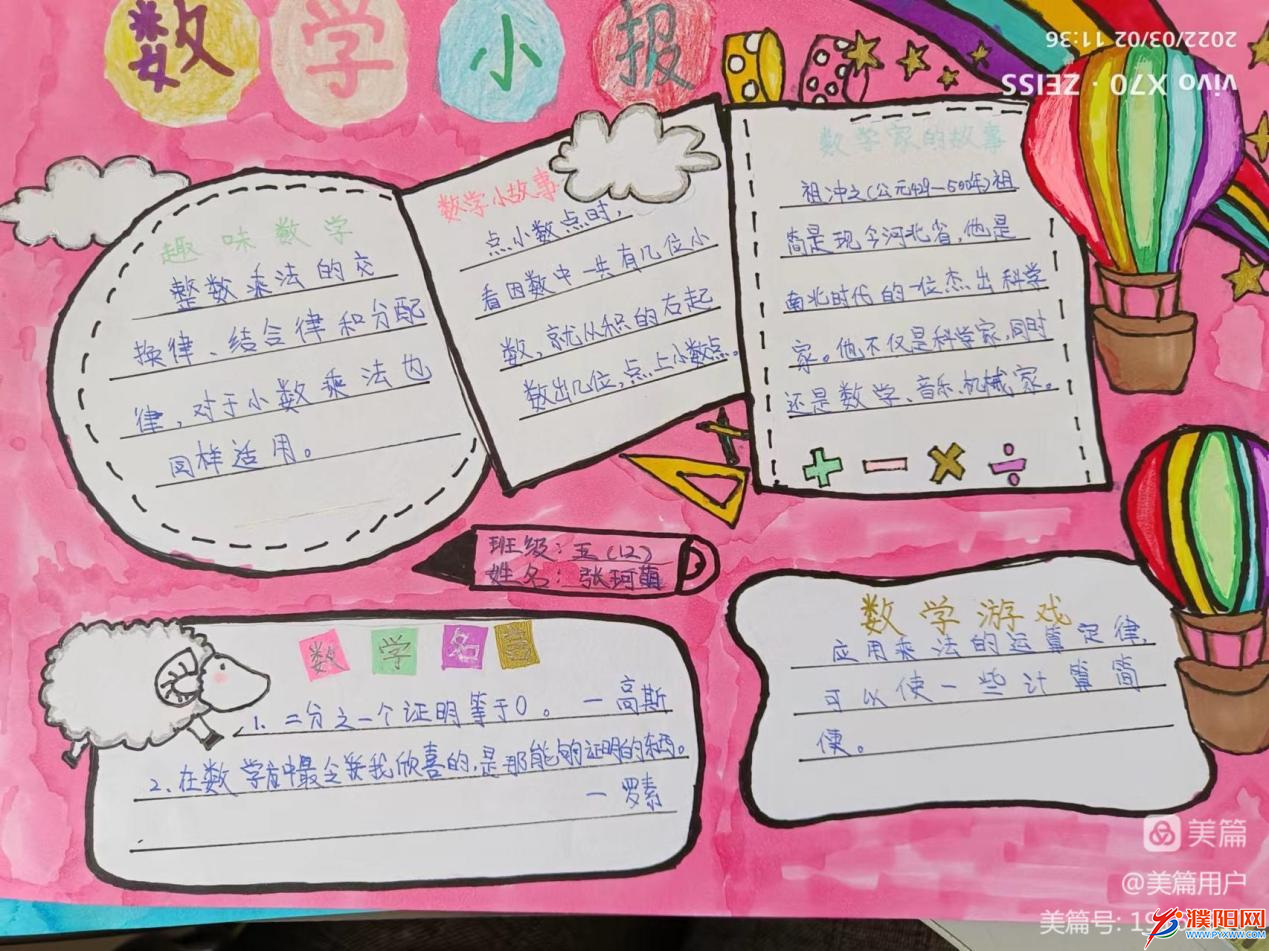 数学小报
2022/03/02 11:36
vivo X70 · ZEISS
趣味数学
整数乘法的交
换律、结合律和分配
律，对于小数乘法也
同样适用。
数学小故事
点小数点时，
看因数中一共有几位小
数，就从积的右起
数出几位，点上小数点。
数学家的故事
祖冲之(公元429—500年)祖
籍是现今河北省，他是
南北时代的一位杰出科学
家。他不仅是科学家，同时
还是数学、音乐、机械家。
班级：五(12)
姓名：张珂萌
数学名言
1、二分之一个证明等于0。 —高斯
2、在数学中最令我欣喜的，是那能够证明的东西。
—罗素
数学游戏
应用乘法的运算定律，
可以使一些计算简
便。
美篇
@美篇用户
美篇号: 19
濮阳网
WWW.PYXWW.COM